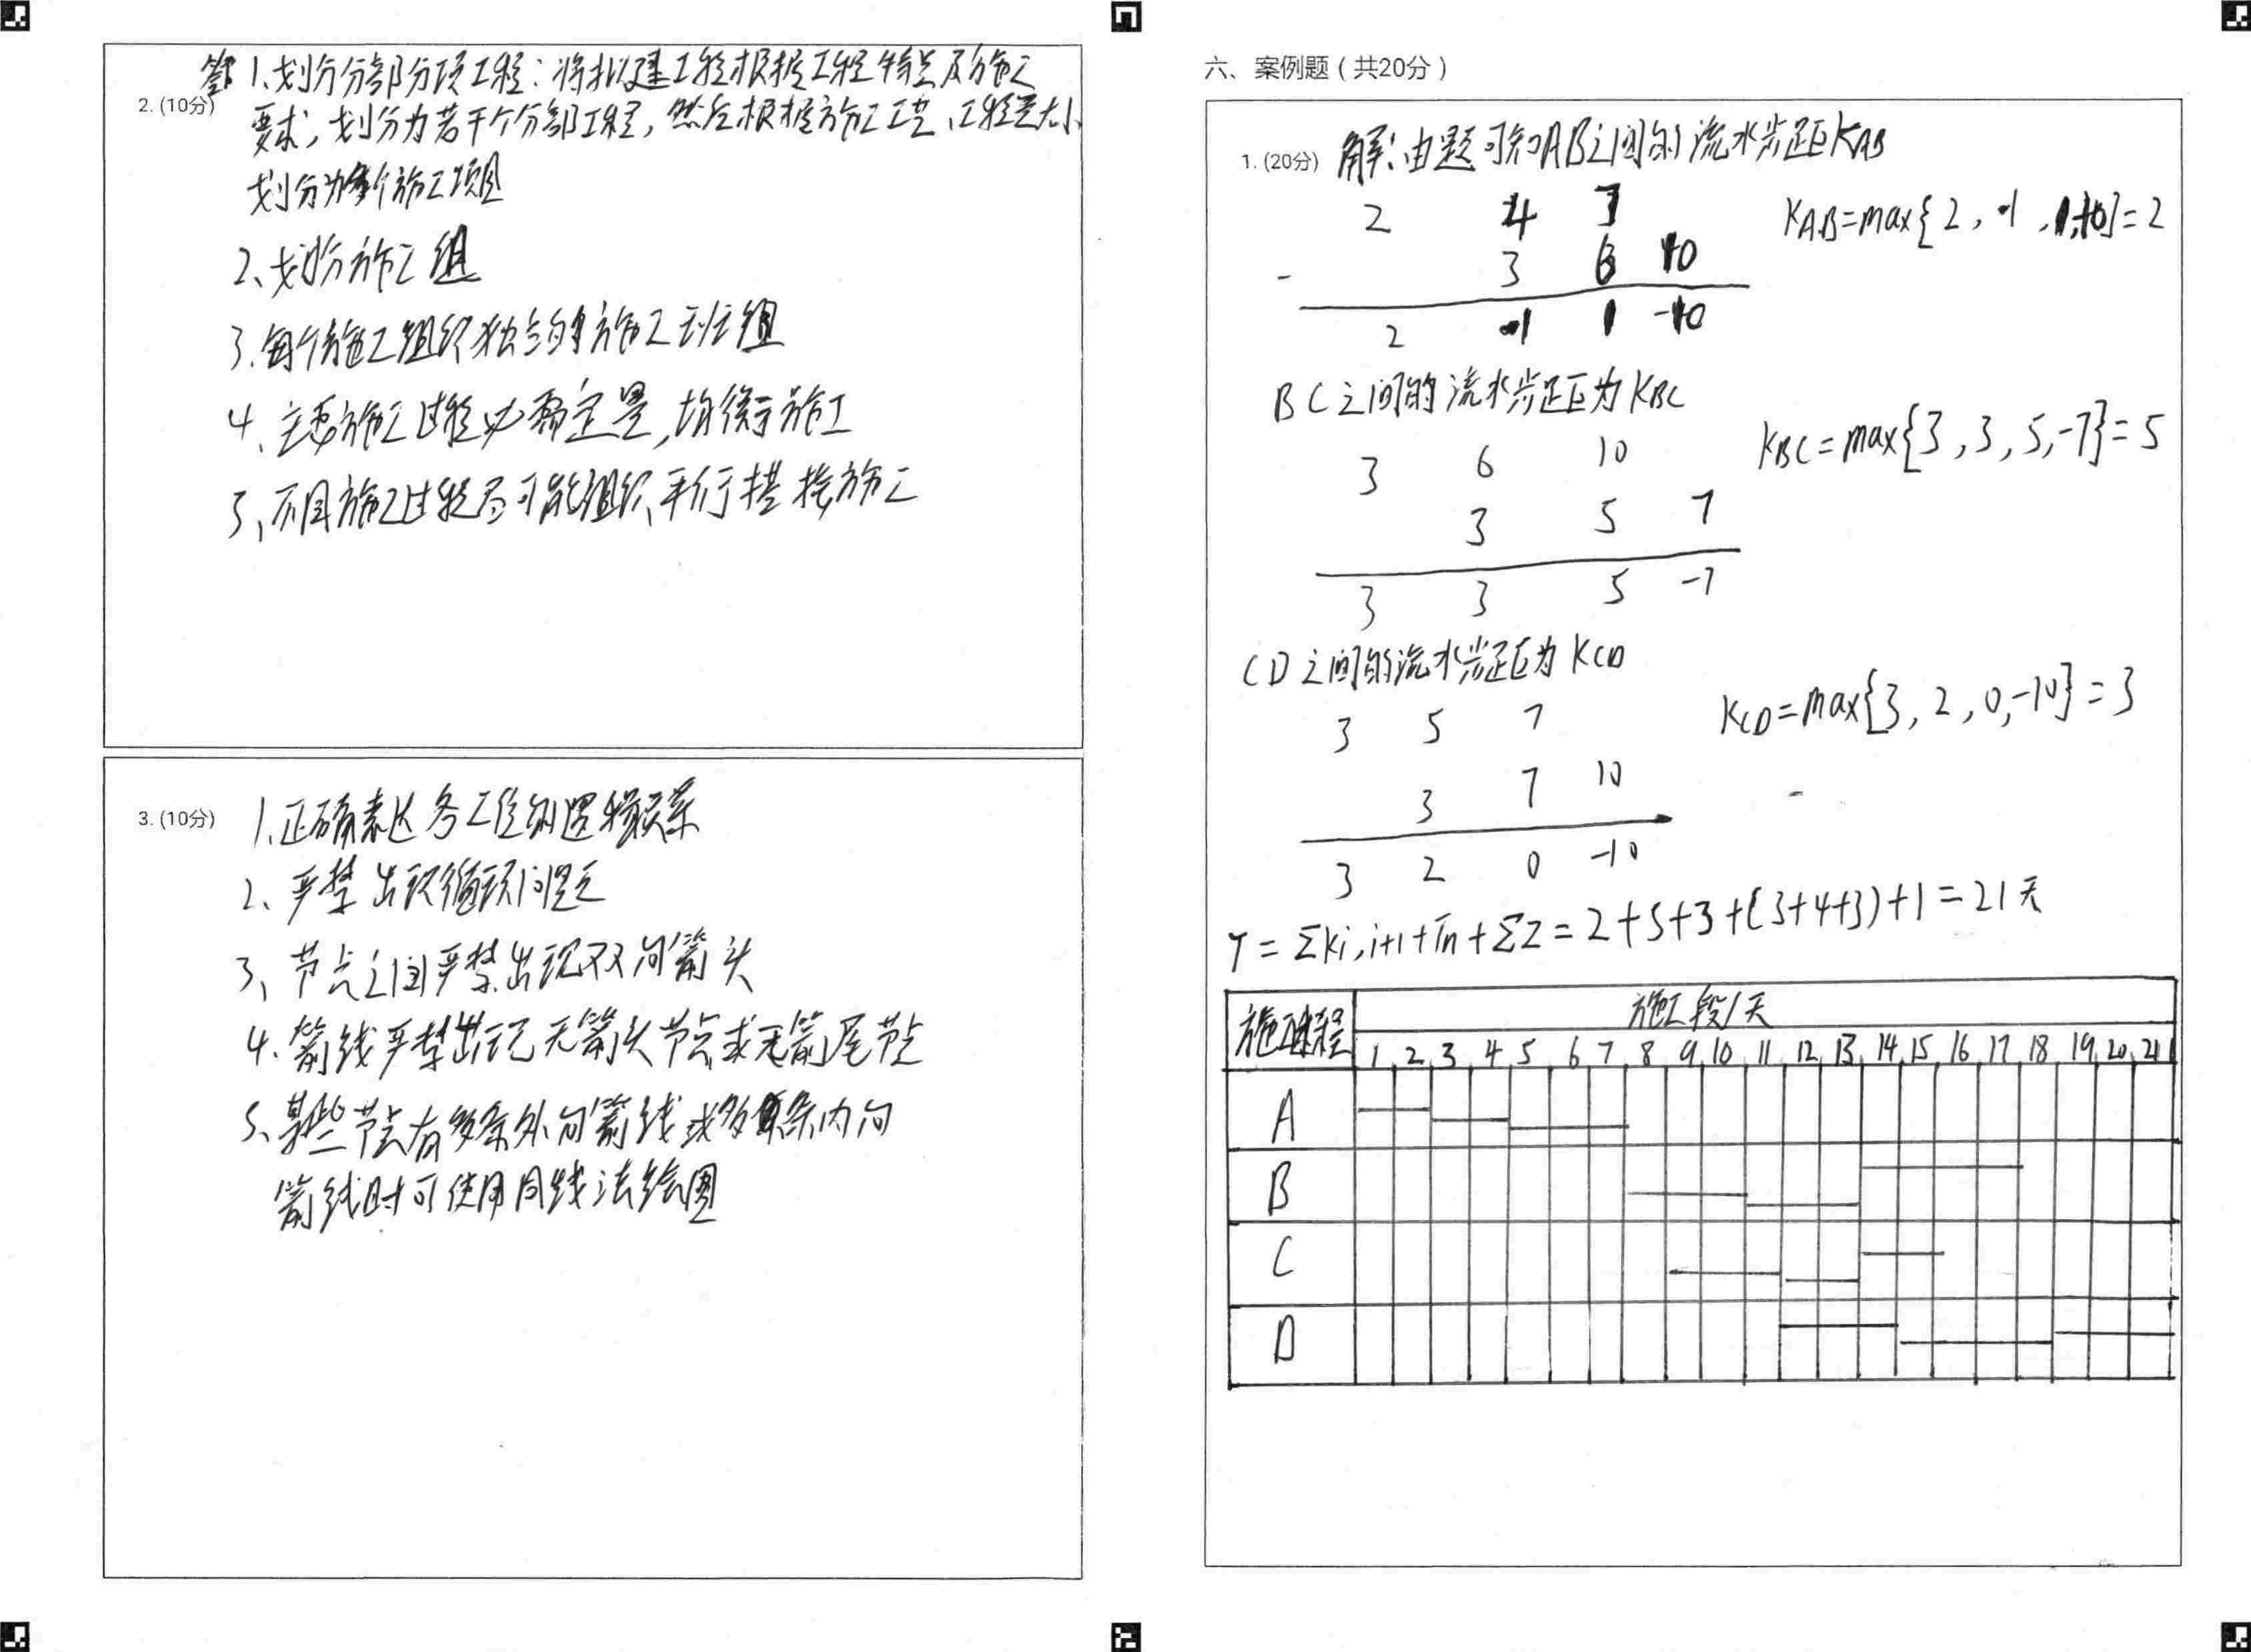 答 1.划分分部分项工程：将拟建工程根据工程特点及施工
2. (10分)
要求，划分为若干个分部工程，然后根据施工工艺、工程量大小
划分为多个施工项目
2、划分施工组
3.每个施工组织独立的施工班组
4、主要施工过程必需定量,均衡施工
5、不同施工过程尽可能组织平行搭接施工
3. (10分)
1.正确表达各工作的逻辑关系
2、严禁出现循环问题
3、节点之间严禁出现双向箭头
4.箭线严禁出现无箭头节点或无箭尾节点
5、某些节点有多条外向箭线或多条内向
箭线时可使用母线法绘图
六、案例题（共20分）
1. (20分)
解:由题可知AB之间的流水步距KAB
2 4 7
- 3 6 10
2 1 1 -10
KAB=max{2, 1, 1,-10}=2
BC之间的流水步距为KBC
3 6 10
3 5 7
3 3 5 -7
KBC=max{3,3,5,-7}=5
CD之间的流水步距为KCD
3 5 7
3 7 10
3 2 0 -10
KCD=max{3,2,0,-10}=3
T=ΣKi,i+1+Tn+ΣZ=2+5+3+(3+4+3)+1=21天
施工过程 施工段/天
1 2 3 4 5 6 7 8 9 10 11 12 13 14 15 16 17 18 19 20 21
A
B
C
D